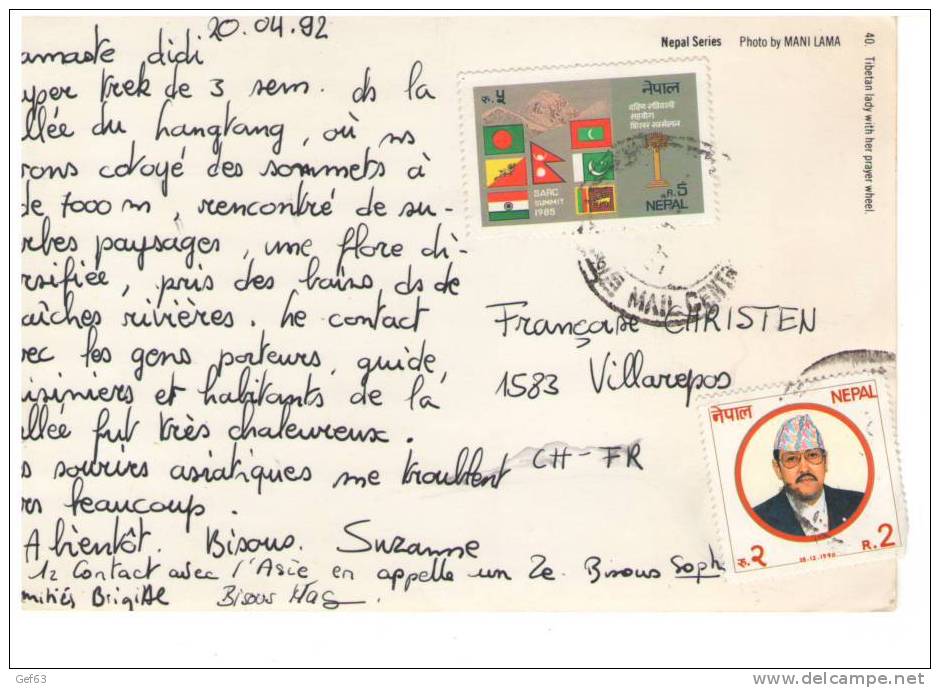 20.04.92
amaste didi
uper trek de 3 sem. ds la
llée du Langtang, où ns
vons cotoyé des sommets à
de 7000 m, rencontré de su-
rbes paysages, une flore di-
rsifiée, pris des bains ds de
aîches rivières. Le contact
vec les gens porteurs, guide,
uisiniers et habitants de la
allée fut très chaleureux.
s sourirs asiatiques me troublent
rs beaucoup.
A bientôt. Bisous. Suzanne
1z Contact avec l'Asie en appelle un 2e. Bisous Soph
mitiés Brigitte Bisous
Nepal Series Photo by MANI LAMA
40. Tibetan lady with her prayer wheel.
रु. ५ नेपाल
दक्षिण एशियाली
सहयोग
शिखर सम्मेलन
SARC
SUMMIT
1985
R. 5
NEPAL
MAIL CENTE
Françoise CHRISTEN
1583 Villarepos
CH-FR
नेपाल NEPAL
रु. २ 28.12.1990 R. 2
Gef63
www.delcampe.net